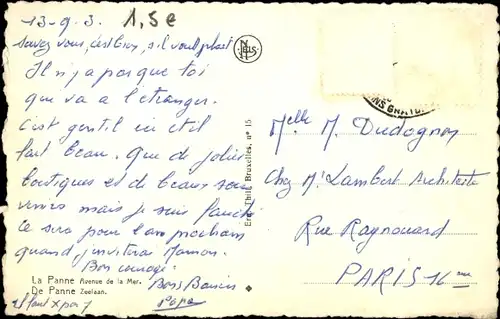 13-9-3.
1,5e
Savez vous, c'est bon, s'il vous plait
Il n'y a pas que toi
que va a l'étranger.
C'est gentil ici et il
fait beau. Que de jolies
boutiques et de beaux sou
venirs mais je suis fauché
ce sera pour l'an prochain
quand j'inviterai Maman.
Bon courage
Bons Baisers
Papa
La Panne Avenue de la Mer.
De Panne Zeelaan.
NELS
Ern. Thill, Bruxelles, nº 15
Melle M. Dudognon
Chez Mr Lambert Architecte
Rue Raynouard
PARIS 16eme